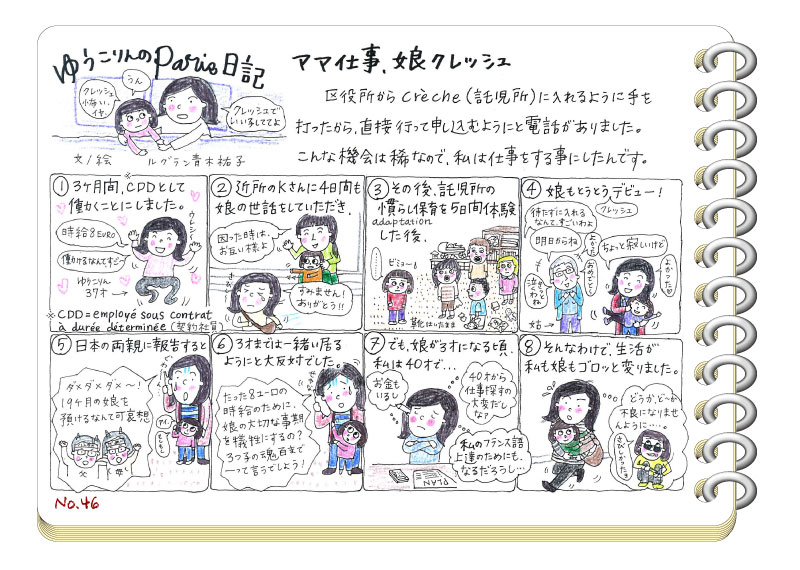 ゆうこりんのParis日記
ママ仕事、娘クレッシュ
うん
クレッシュ
怖い、
イヤ。
クレッシュで
いい子しててよ
文/絵 ルグラン青木祐子
区役所からCrèche(託児所)に入れるように手を
打ったから、直接行って申し込むようにと電話がありました。
こんな機会は稀なので、私は仕事をする事にしたんです。
① 3ヶ月間、CDD※として
働くことにしました。
ウレシイ
時給8EURO
働けるなんてすごい
ゆうこりん
37才
※CDD=employé sous contrat
à durée déterminée(契約社員)
② 近所のKさんに4日間も
娘の世話をしていただき、
困った時は、
お互い様よ
ママ
すみません!
ありがとう!!
③ その後、託児所の
慣らし保育を5日間体験
adaptation
した後、
靴はいたまま
④ 娘もとうとうデビュー!
クレッシュ
待たずに入れる
なんて、すごいわよ
明日からね
ちょっと寂しいけど
よかった
姑→
⑤ 日本の両親に報告すると
ダメダメダメ〜!
19ヶ月の娘を
預けるなんて可哀想
父
母
⑥ 3才までは一緒に居る
ようにと大反対でした。
たった8ユーロの
時給のために、
娘の大切な時期
を犠牲にするの?
3つ子の魂百まで
って言うでしょう!
⑦ でも、娘が3才になる頃、
私は40才で…
お金も
いるし
40才から
仕事探すの
大変だし
な?
私のフランス語
上達のためにも、
なるだろうし…
PLAN
⑧ そんなわけで、生活が
私も娘もゴロッと変りました。
どうか、ど〜か
不良になりませ
んように……。
さびしかったョ
No.46